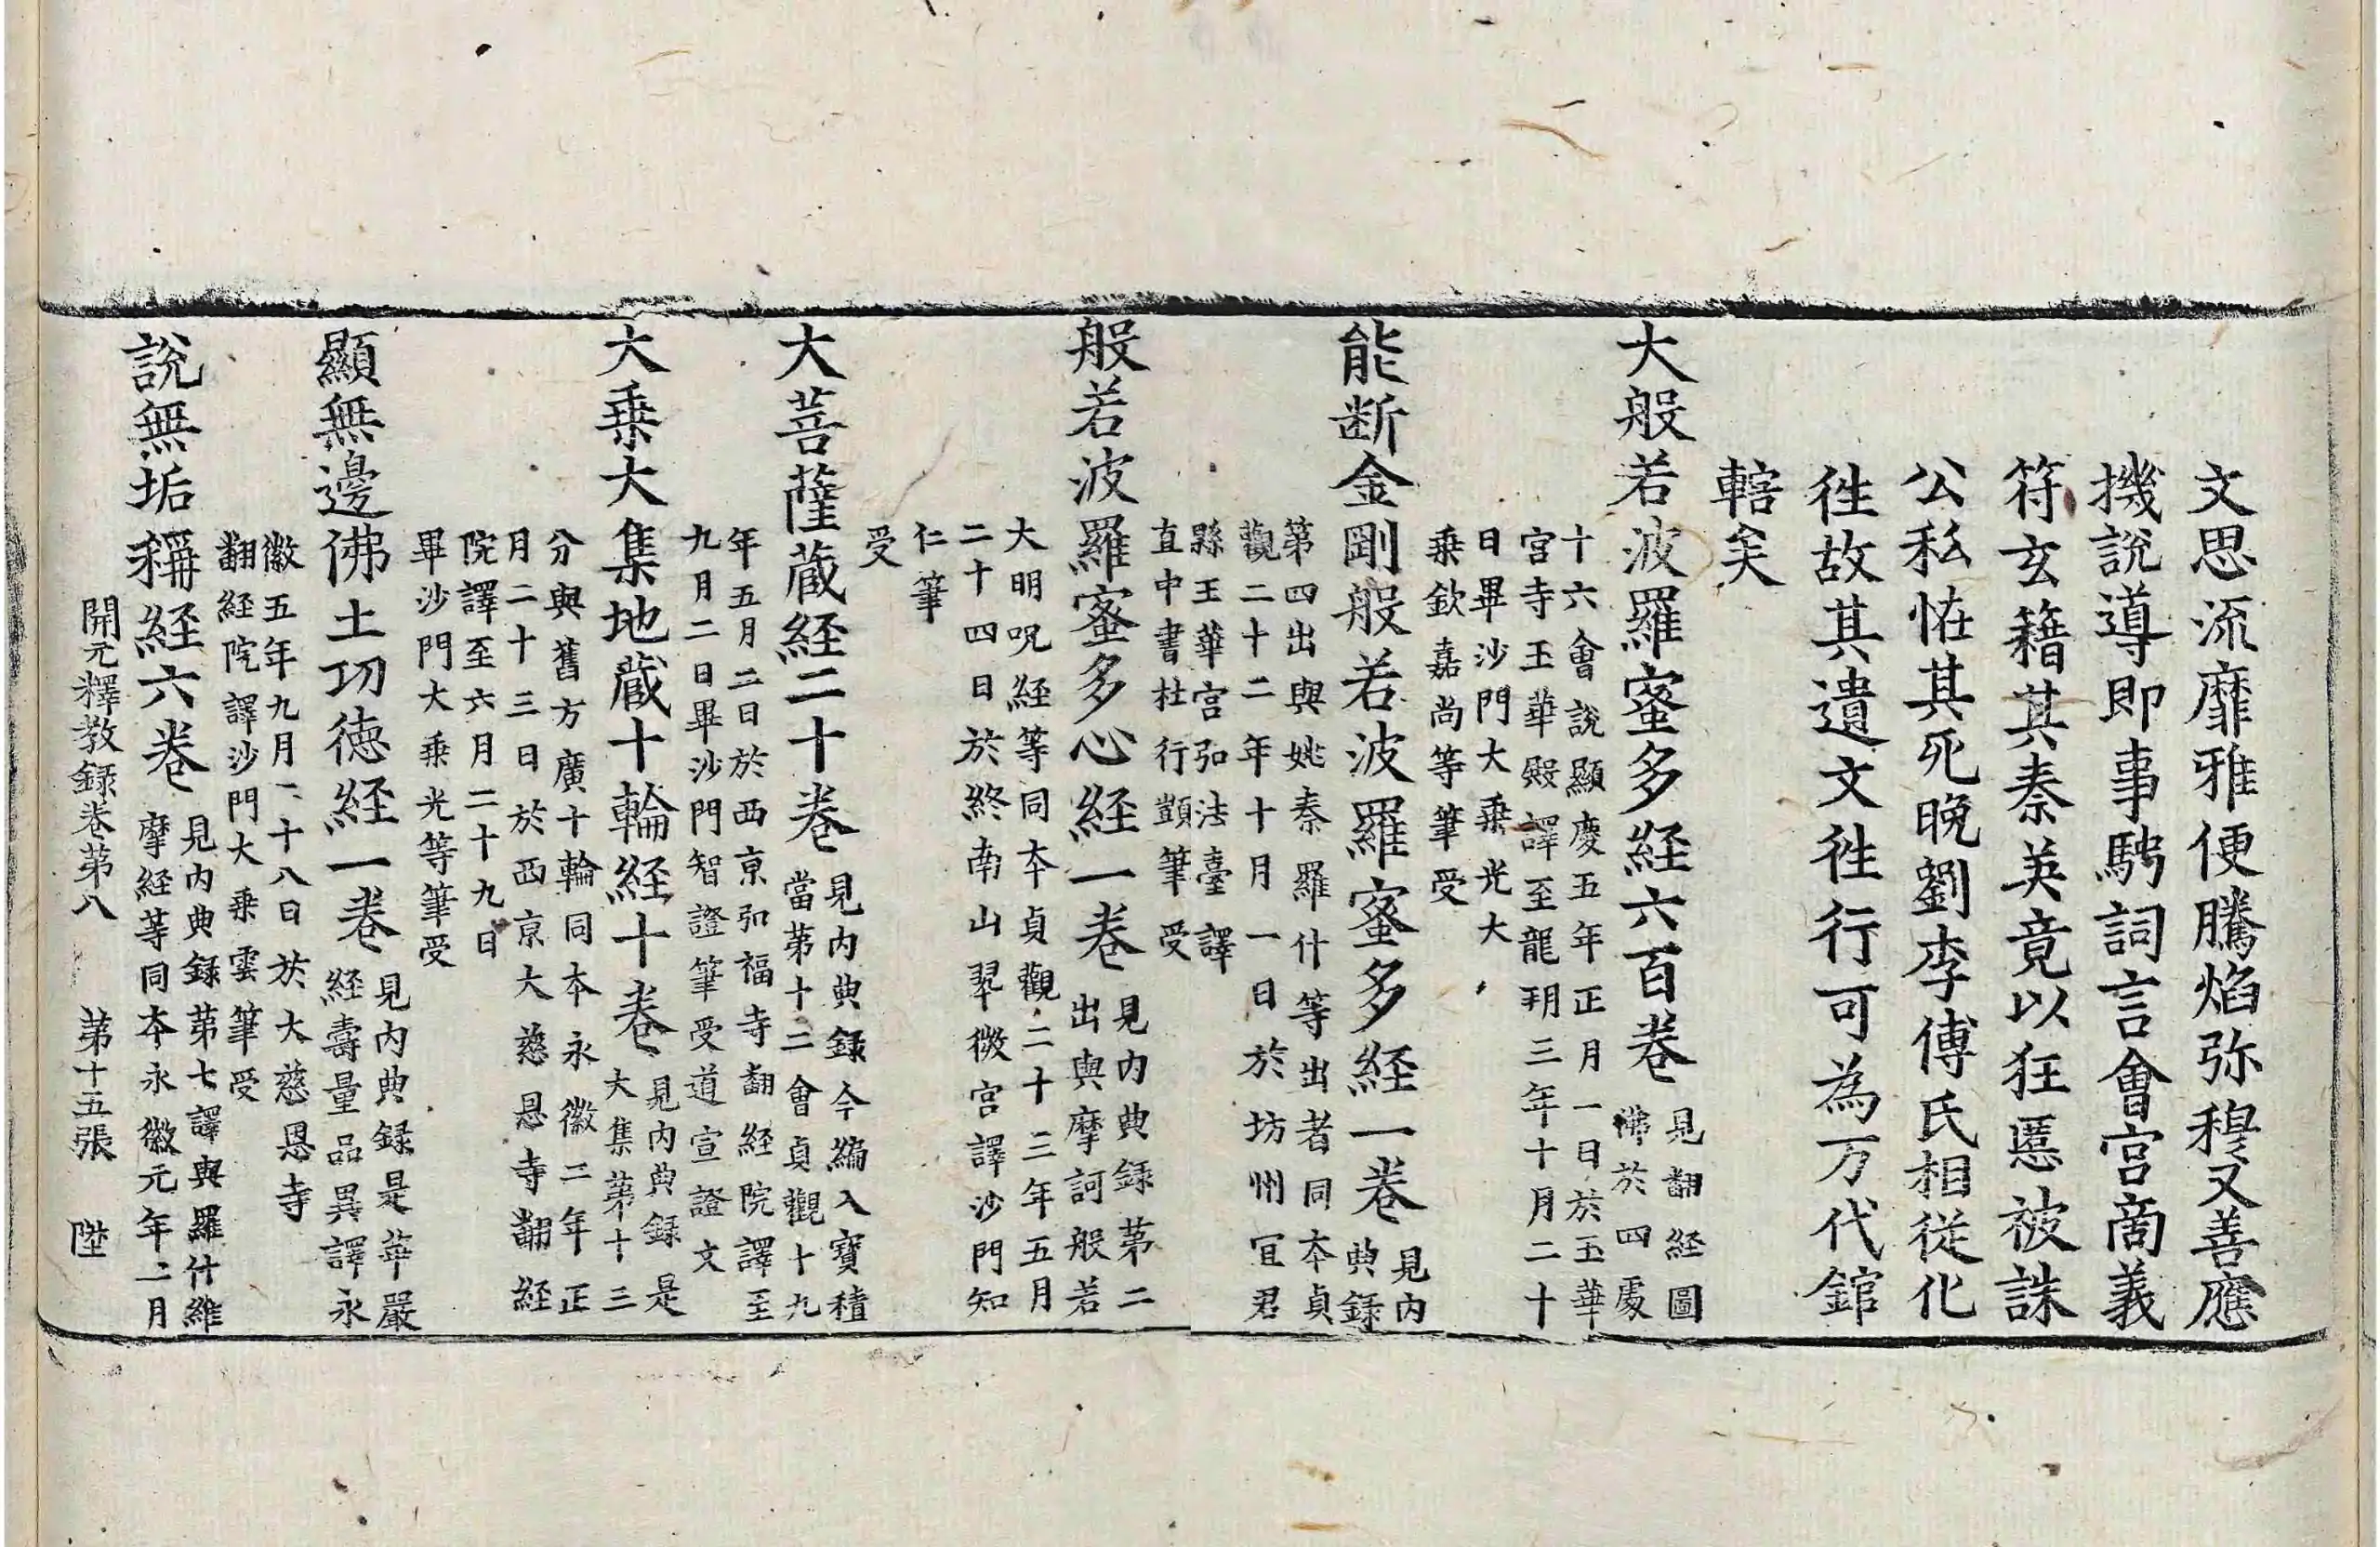 文思流靡雅便騰焰弥穆又善應
機說導即事騁詞言會宮商義
符玄籍其秦英竟以狂悖被誅
公私恠其死晚劉李傅氏相從化
徃故其遺文徃行可為万代錧
轄矣
大般若波羅蜜多経六百卷
見翻経圖
佛於四處
十六會說顯慶五年正月一日於玉華
宮寺玉華殿譯至龍朔三年十月二十
日畢沙門大乗光大
乗欽嘉尚等筆受
能断金剛般若波羅蜜多経一卷
見内
典録
第四出與姚秦羅什等出者同本貞
觀二十二年十月一日於坊州宜君
縣玉華宮弘法臺譯
直中書杜行顗筆受
般若波羅蜜多心経一卷
見内典録第二
出與摩訶般若
大明呪経等同本貞觀二十三年五月
二十四日於終南山翠微宮譯沙門知
仁筆
受
大菩薩蔵経二十卷
見内典録今編入寶積
當第十二會貞觀十九
年五月二日於西京弘福寺翻経院譯至
九月二日畢沙門智證筆受道宣證文
大乗大集地蔵十輪経十卷
見内典録是
大集第十三
分與舊方廣十輪同本永徽二年正
月二十三日於西京大慈恩寺翻経
院譯至六月二十九日
畢沙門大乗光等筆受
顯無邊佛土功徳経一卷
見内典録是華嚴
経壽量品異譯永
徽五年九月二十八日於大慈恩寺
翻経院譯沙門大乗雲筆受
說無垢稱経六卷
見内典録第七譯與羅什維
摩経等同本永徽元年二月
開元釋教録卷第八　第十五張　陞